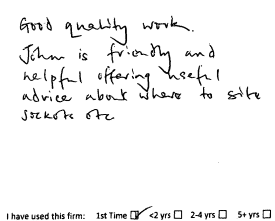 Good quality work.
John is friendly and
helpful offering useful
advice about where to site
sockets etc
I have used this firm: 1st Time ☑ <2 yrs ☐ 2-4 yrs ☐ 5+ yrs ☐